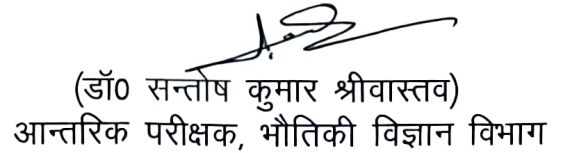 (डॉ0 सन्तोष कुमार श्रीवास्तव)
आन्तरिक परीक्षक, भौतिकी विज्ञान विभाग